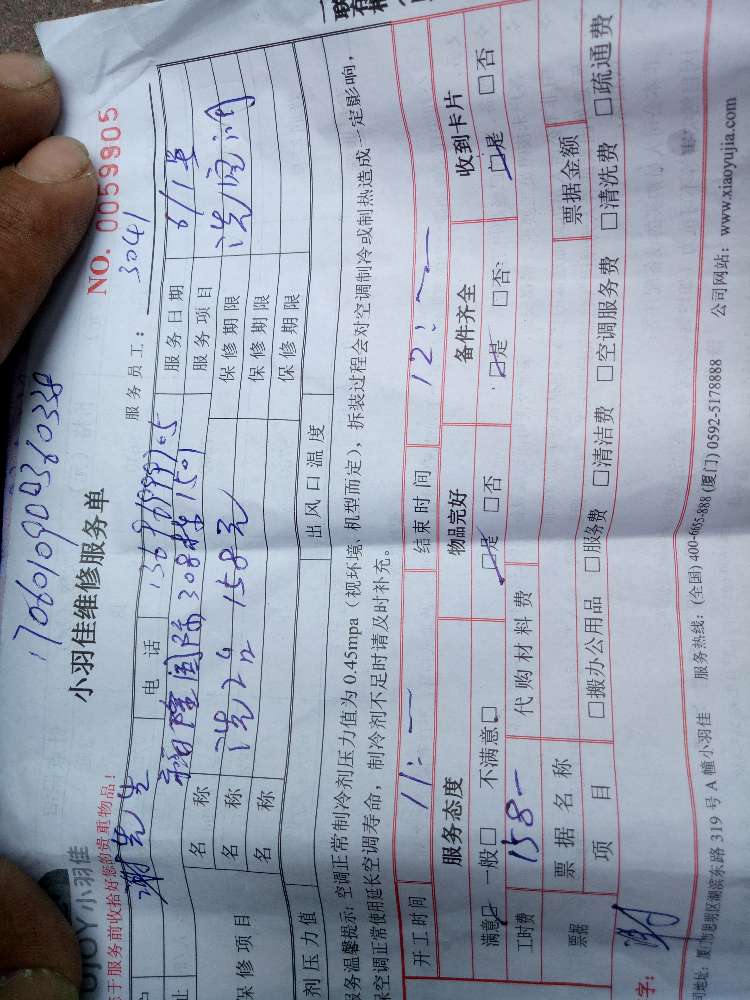 17060109004360338
小羽佳
小羽佳维修服务单
NO. 0059905
于服务前收拾好您的贵重物品！
服务员工： 3041
谢先生 电话 服务日期 6/1号
裕隆国际308栋1501 服务项目 洗空调
名称 洗2台 158元 保修期限
修项目 名称 保修期限
名称 保修期限
剂压力值 出风口温度
服务温馨提示：空调正常制冷剂压力值为 0.45mpa（视环境、机型而定），拆装过程会对空调制冷或制热造成一定影响，
空调正常使用延长空调寿命，制冷剂不足时请及时补充。
开工时间 11:一 结束时间 12:一
服务态度 物品完好 备件齐全 收到卡片
满意☑ 一般□ 不满意□ ☑是 □否 ☑是 □否 ☑是 □否
工时费 158一 代购材料费
票据 票据名称 票据金额
项目 □搬办公用品 □服务费 □清洁费 □空调服务费 □清洗费 □疏通费
字：
司地址：厦门市思明区湖滨东路 319 号 A 幢小羽佳 服务热线：(全国) 400-6655-888 (厦门) 0592-5178888 公司网站：www.xiaoyujia.com